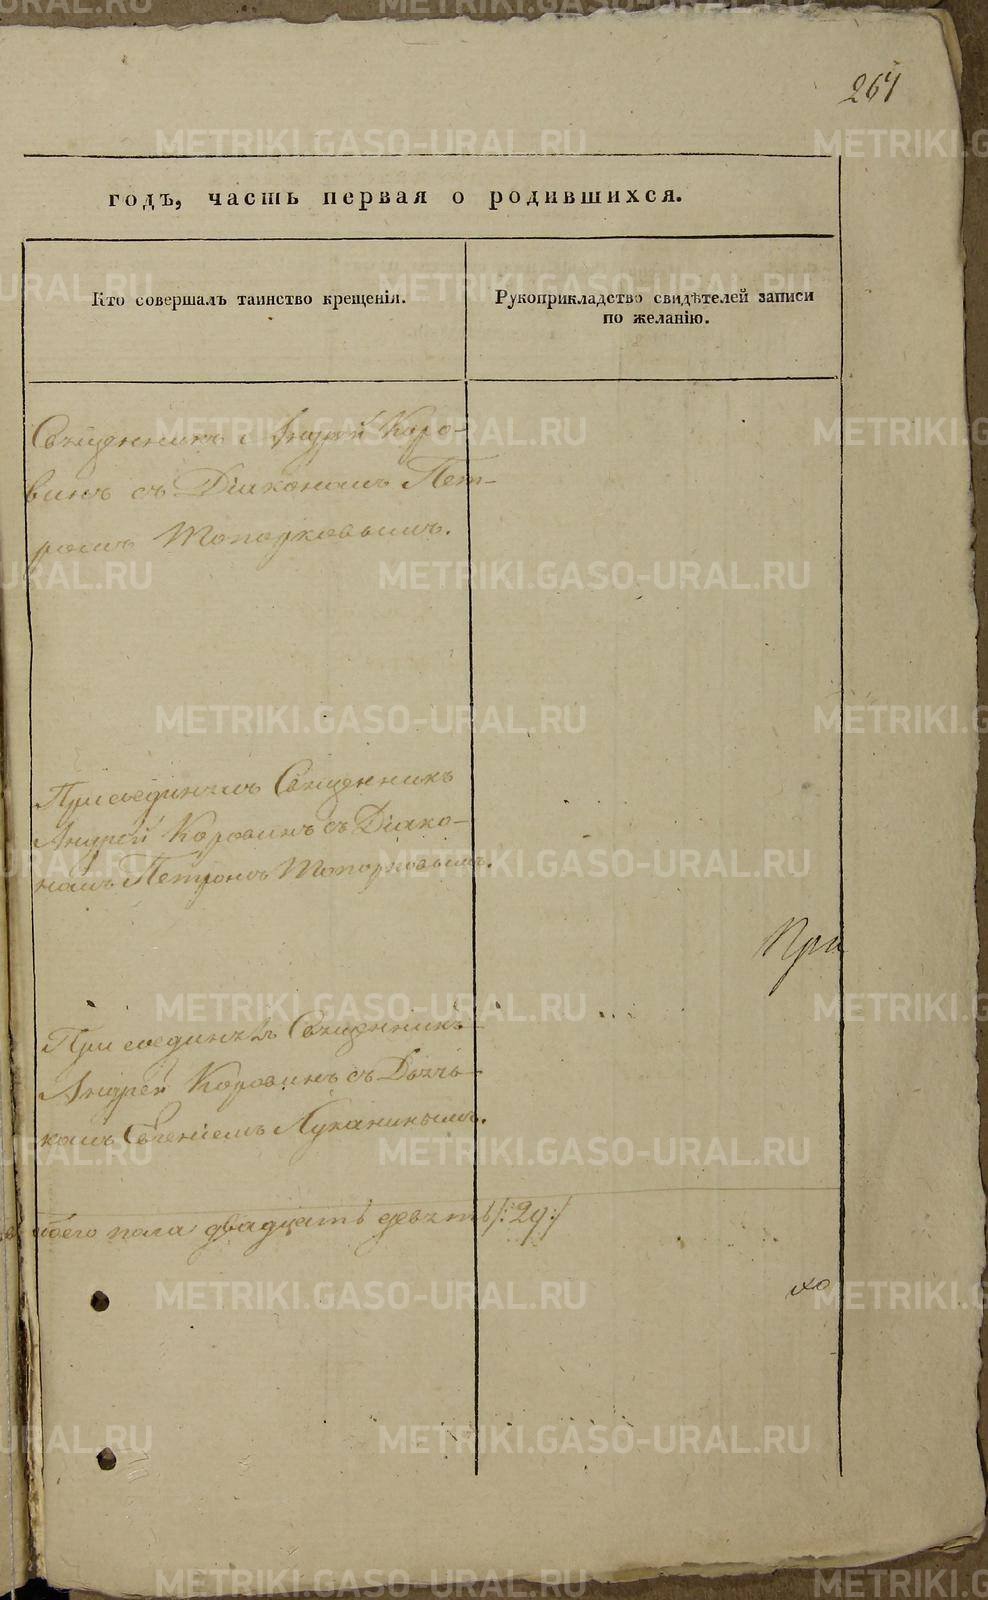 267
годъ, часть первая о родившихся.
Кто совершалъ таинство крещенія.
Рукоприкладство свидѣтелей записи
по желанію.
Священникъ Андрей Коро-
винъ съ Діакономъ Пет-
ромъ Топорковымъ.
Присоединилъ Священникъ
Андрей Коровинъ съ Діако-
номъ Петромъ Топорковымъ.
При
Присоединилъ Священникъ
Андрей Коровинъ съ Дьячь-
комъ Евгеніемъ Луканинымъ.
обоего пола двадцать девять /:29:/
хо
METRIKI.GASO-URAL.RU